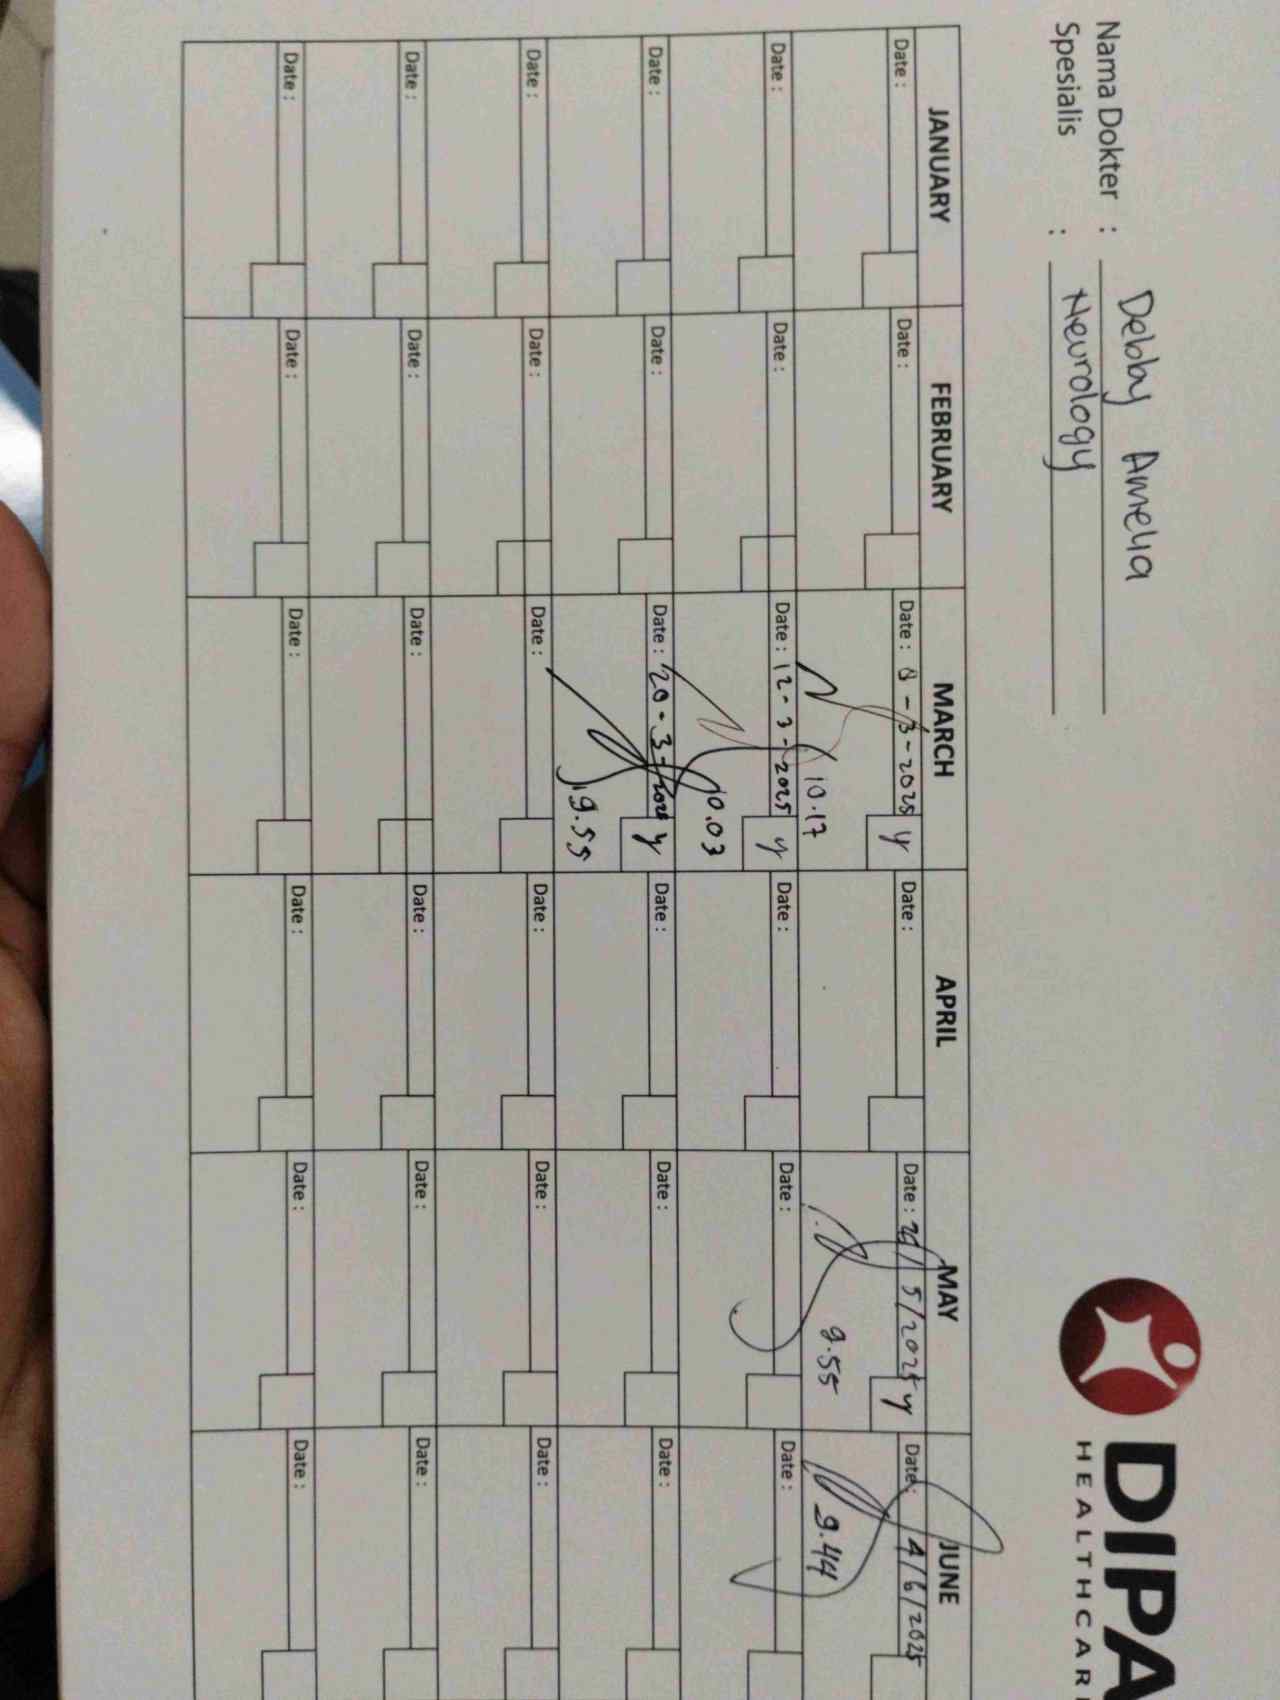 DIPA
HEALTHCAR
Nama Dokter : Debby Amelia
Spesialis : Neurology
JANUARY FEBRUARY MARCH APRIL MAY JUNE
Date : Date : Date : 8-3-2025 y Date : Date : 5/2025 y Date : 4/6/2025
10.17 9.55 9.44
Date : Date : Date : 12-3-2025 y Date : Date : Date :
10.03
Date : Date : Date : 20-3- y Date : Date : Date :
9.55
Date : Date : Date : Date : Date : Date :
Date : Date : Date : Date : Date : Date :
Date : Date : Date : Date : Date : Date :